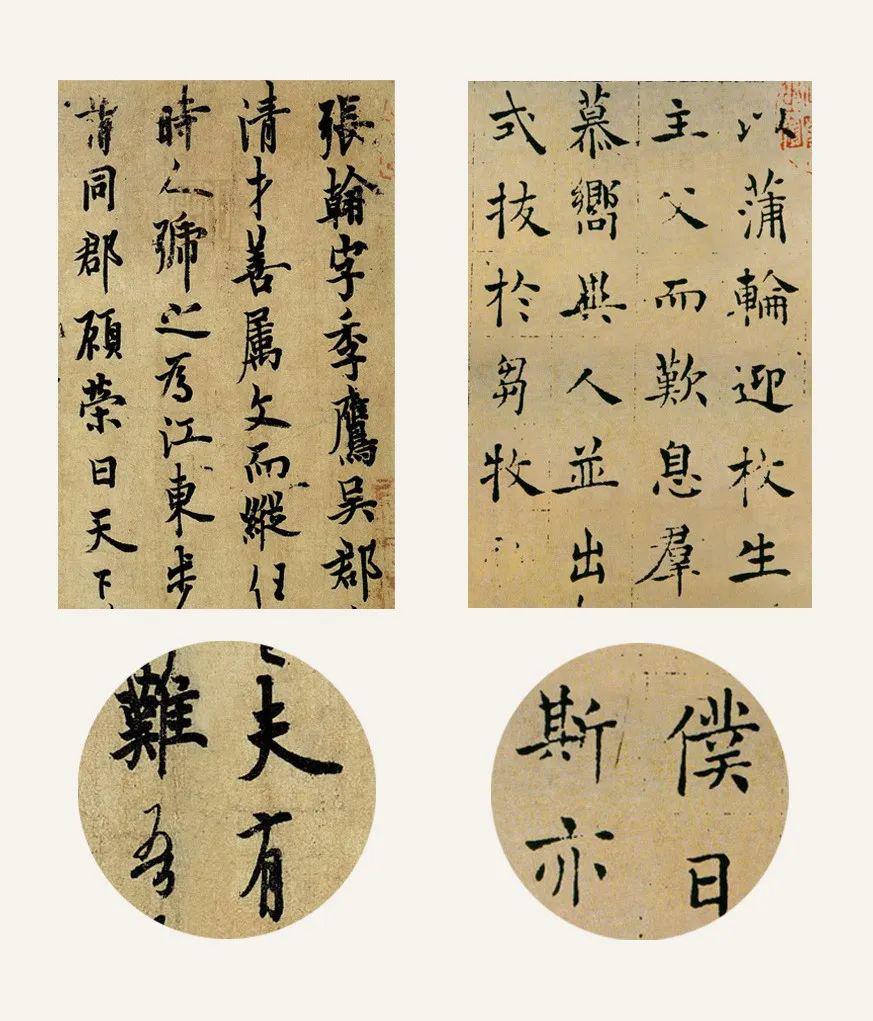 張翰字季鷹吳郡
清才善属文而縱任
時人號之為江東步
謂同郡顧榮曰天下
以蒲輪迎枚生
主父而歎息羣
慕嚮異人並出
式拔於芻牧
夫有
難吾
僕日
斯亦